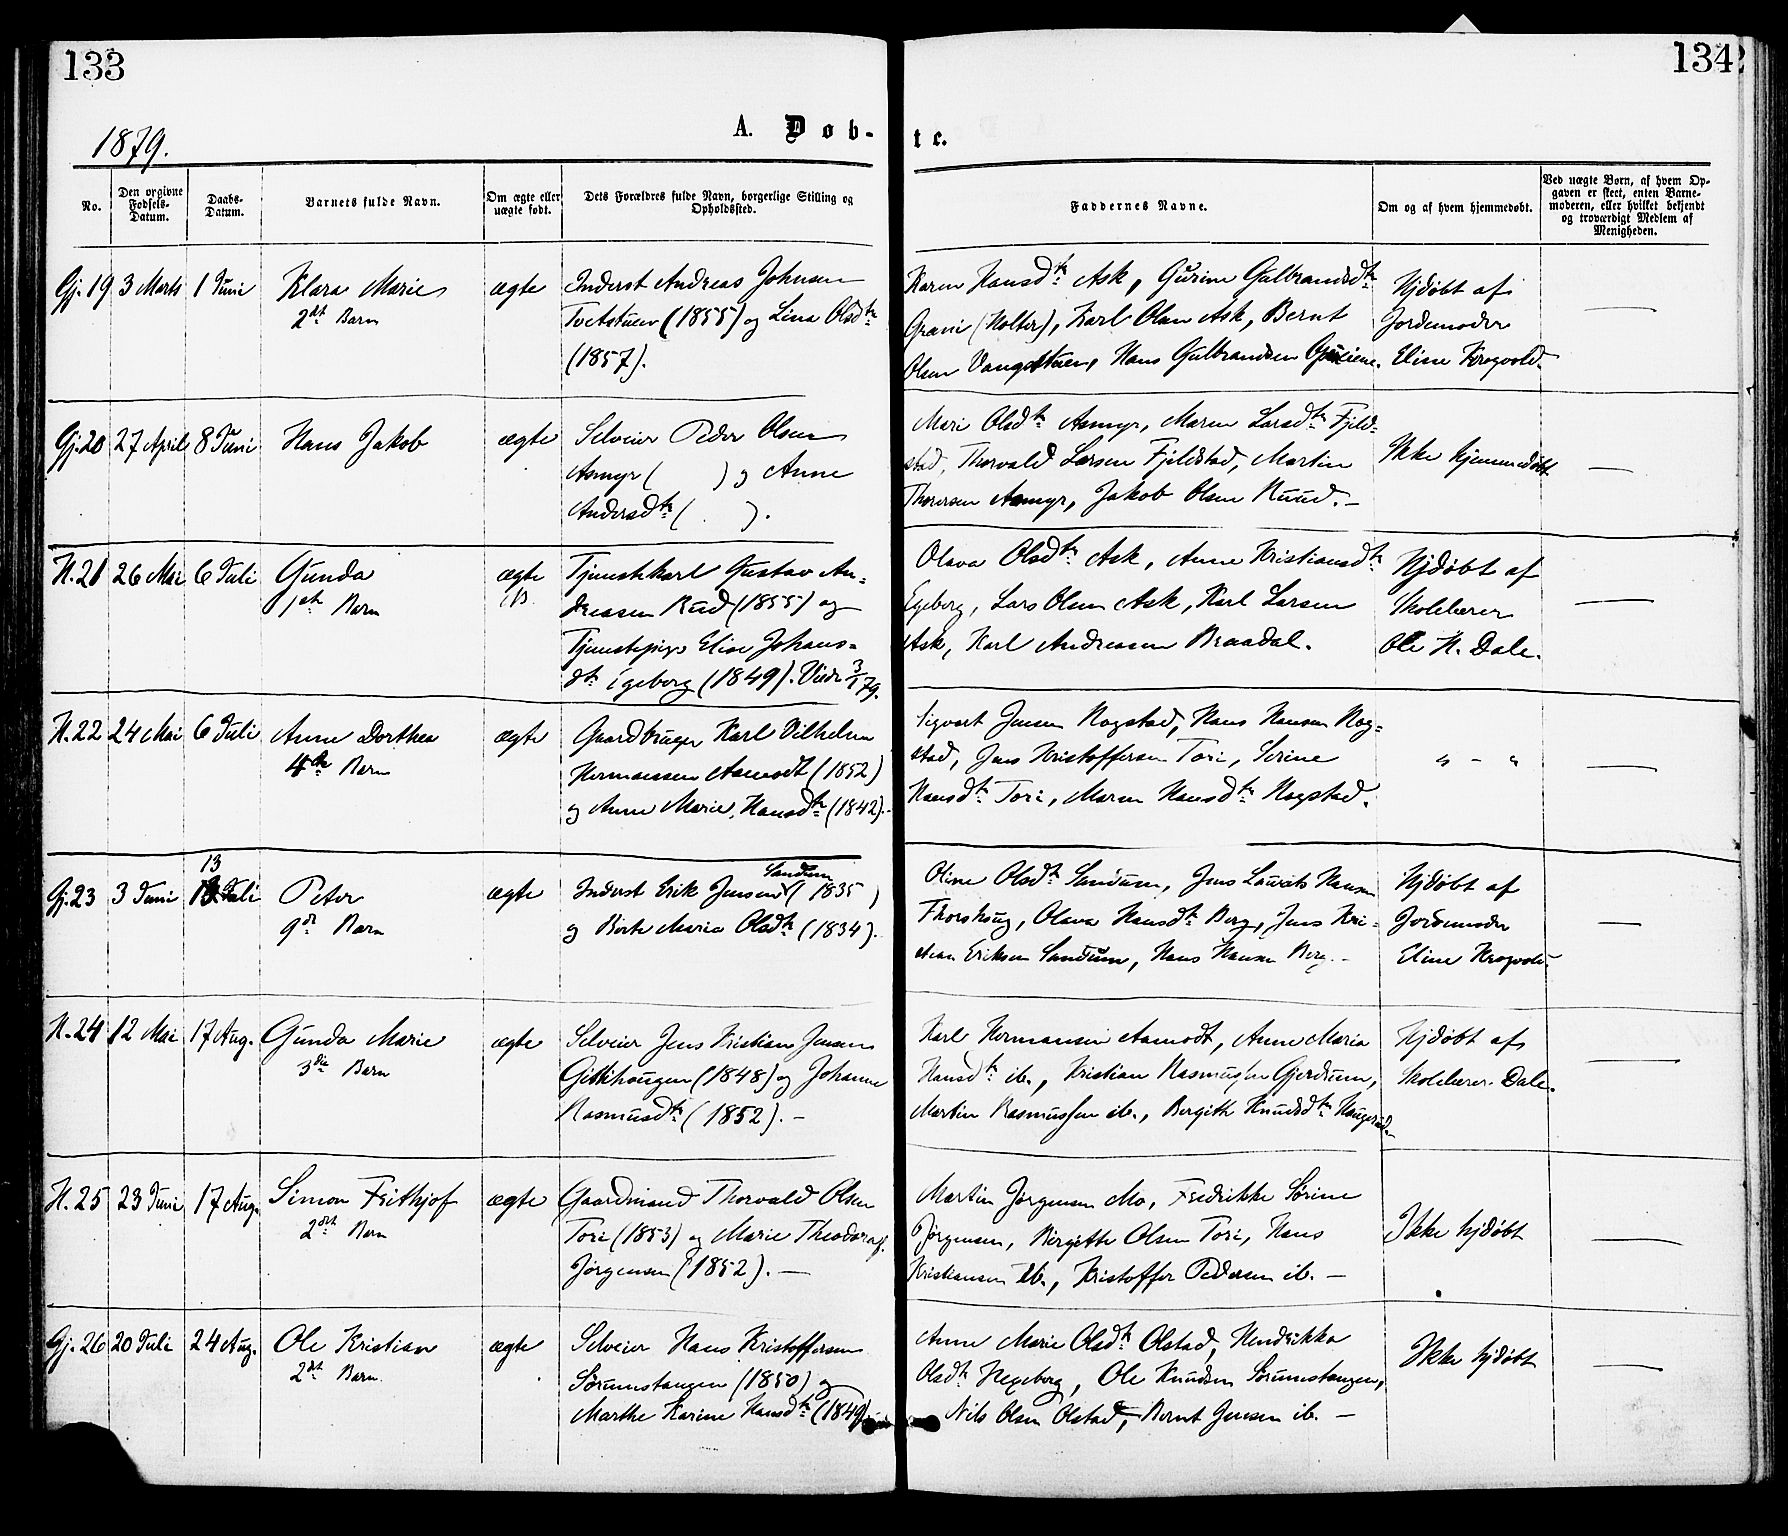 133
134
1879.
A. Døb-
te.
No.
Den opgivne Fødsels-Datum.
Daabs-Datum.
Barnets fulde Navn.
Om ægte eller uægte født.
Dets Forældres fulde Navn, borgerlige Stilling og Opholdssted.
Faddernes Navne.
Om og af hvem hjemmedøbt.
Ved uægte Børn, af hvem Op-
gaven er skeet, enten Barne-
moderen, eller hvilket bekjendt
og troværdigt Medlem af
Menigheden.
Gj. 19 3 Marts 1 Juni Klara Marie ægte
2det Barn
Inderst Andreas Johnsen
Tvetstuen (1855) og Lina Olsdtr
(1857).
Karen Hansdtr Ask, Gurine Gulbrandsdtr
Gravi (Holter), Karl Olsen Ask, Bernt
Olsen Vangstuen, Hans Gulbrandsen
Hjdøbt af
Jordemoder
Eline Krogvold.
Gj. 20 27 April 8 Juni Hans Jakob ægte
Selveier Peder Olsen
Asmyr ( ) og Anne
Andersdtr ( ).
Mari Olsdtr Asmyr, Maren Larsdtr Fjeld-
stad, Thorvald Larsen Fjeldstad, Martin
Thoresen Asmyr, Jakob Olsen Ruud. -
Ikke hjemmedøbt
H. 21 26 Mai 6 Juli Gunda ægte
1ste Barn
Tjenestekarl Gustav An-
dreasen Rud (1855) og
Tjenestepige Elise Johans-
dtr Egeberg (1849). Viede 3/1 79.
Olava Olsdtr Ask, Anne Kristiansdtr
Egeberg, Lars Olsen Ask, Karl Larsen
Ask, Karl Andreasen Braadal.
Hjdøbt af
Skolelærer
Ole H. Dale.
H. 22 24 Mai 6 Juli Anne Dorthea ægte
4de Barn
Gaardbruger Karl Vilhelm
Hermansen Aamodt (1852)
og Anne Marie Hansdtr (1842). -
Sigvart Jensen Rogstad, Hans Hansen Rog-
stad, Jens Kristoffersen Tori, Serine
Hansdtr Tori, Maren Hansdtr Rogstad.
" - "
13
Gj. 23 3 Juni Juli Peter ægte
9de Barn
Sandum
Inderst Erik Jensen (1835)
og Birte Maria Olsdtr (1834).
Oline Olsdtr Sandum, Jens Laurits Hansen
Thorshaug, Olava Hansdtr Berg, Jens Kri-
stian Eriksen Sandum, Hans Hansen Berg. -
Hjdøbt af
Jordemoder
Eline Krogvold.
H. 24 12 Mai 17 Aug. Gunda Marie ægte
3die Barn
Selveier Jens Kristian Jensen
Gittihaugen (1848) og Johanne
Rasmusdtr (1852). -
Karl Hermansen Aamodt, Anne Maria
Hansdtr ib., Kristian Rasmussen Gjerdrum,
Martin Rasmussen ib., Bergithe Knudsdtr Haugerud.
Hjdøbt af
Skolelærer Dale.
H. 25 23 Juni 17 Aug. Simon Frithjof ægte
2det Barn
Gaardmand Thorvald Olsen
Tori (1853) og Marie Theodora f.
Jørgensen (1852). -
Martin Jørgensen Mo, Fredrikke Sørine
Jørgensen, Birgitte Olsen Tori, Hans
Kristiansen ib., Kristoffer Pedersen ib. -
Ikke hjdøbt
Gj. 26 20 Juli 24 Aug. Ole Kristian ægte
2det Barn.
Selveier Hans Kristoffersen
Sørumstangen (1850) og
Marthe Karine Hansdtr (1849)
Anne Marie Olsdtr Olstad, Hendrikka
Olsdtr Hegeberg, Ole Knudsen Sørumstangen,
Nils Olsen Olstad, Bernt Jensen ib. -
Ikke hjdøbt